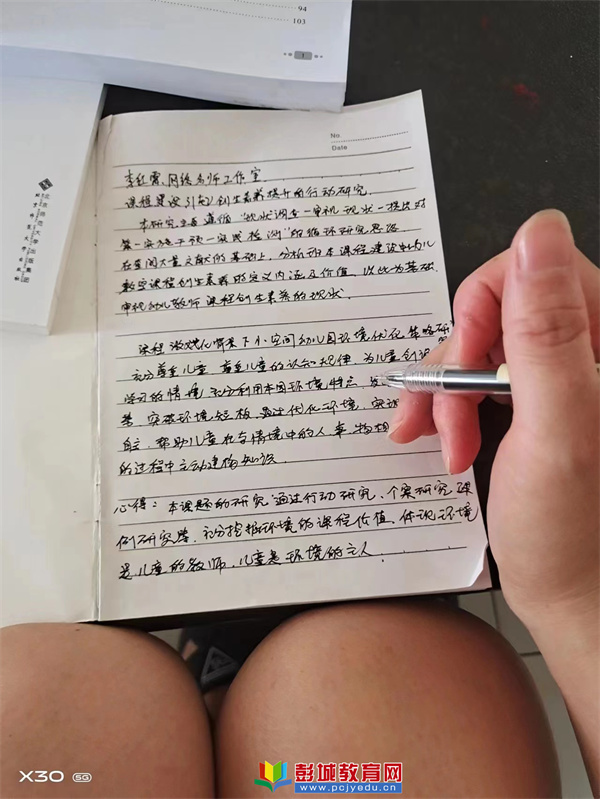 94
103
1
No
Date
李红霞网络名师工作室
课程建设引领创生素养提升的行动研究.
本研究主要遵循"现状调查—审视现状—提出对
策—实施干预—实践检测"的循环研究思路.
在查阅大量文献的基础上,分析班本课程建设中幼儿
教师课程创生素养的定义内涵及价值.以此为基础,
审视幼儿教师课程创生素养的现状.
课程游戏化背景下小空间幼儿园环境优化策略研
充分尊重儿童,尊重儿童的认知规律,为儿童创设
学习的情境,充分利用本园环境特点
案,突破环境短板,通过优化环境,实现
自主,帮助儿童在与情境中的人事物相
的过程中主动建构知识.
心得:本课题的研究通过行动研究、个案研究、课
例研究等,充分挖掘环境的课程价值,体现环境
是儿童的教师,儿童是环境的主人.
X30 5G
彭城教育网
www.pcjyedu.cn